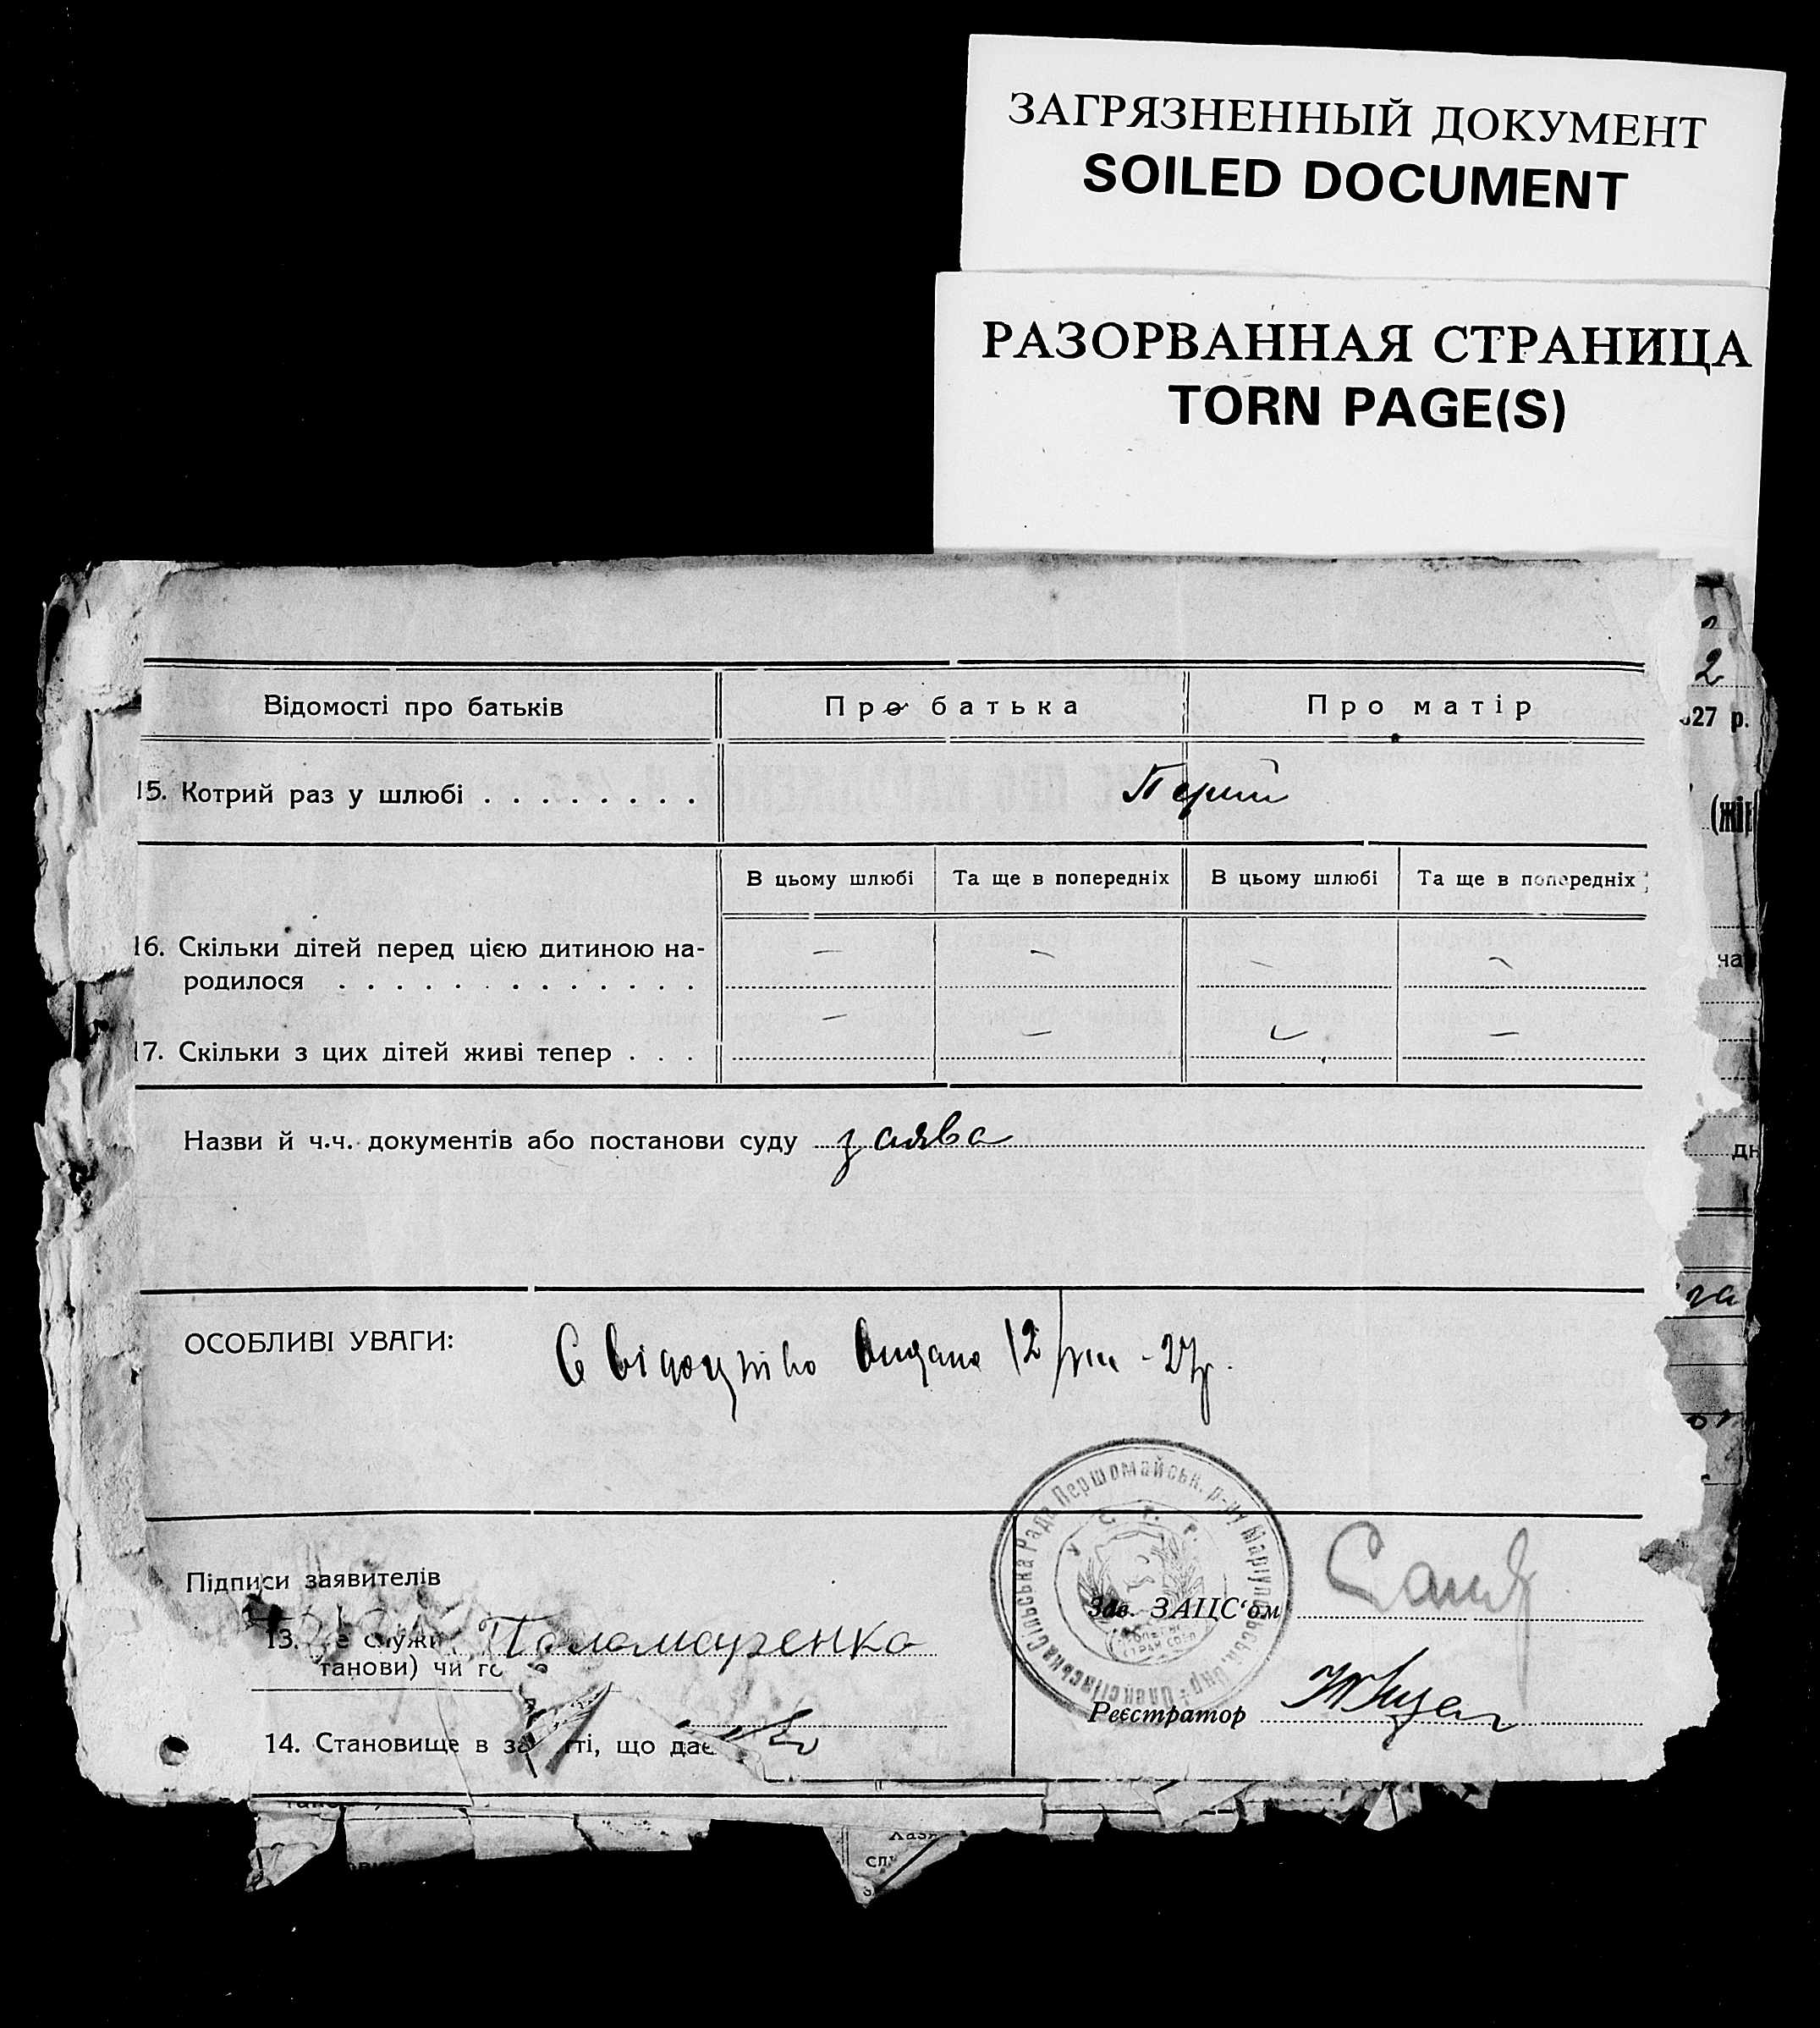 ЗАГРЯЗНЕННЫЙ ДОКУМЕНТ
SOILED DOCUMENT
РАЗОРВАННАЯ СТРАНИЦА
TORN PAGE(S)
Відомості про батьків Про батька Про матір
15. Котрий раз у шлюбі . . . . . . . .
В цьому шлюбі Та ще в попередніх В цьому шлюбі Та ще в попередніх
16. Скільки дітей перед цією дитиною на-
родилося . . . . . . . . . . . . . .
17. Скільки з цих дітей живі тепер . . .
Назви й ч.ч. документів або постанови суду заява
ОСОБЛИВІ УВАГИ: Свідоцтво видано 12/VIII - 27р.
Підписи заявителів
Зав. ЗАЦС'ом
13. е служи Паламаренко
танови) чи го
Реєстратор
14. Становище в за ті, що дає
Сільська Рада Першомайськ. р-ну Маріупольськ. Окр.
У С Р Р
27 р.
(жін
на
дн
2
га
Хазя
сл